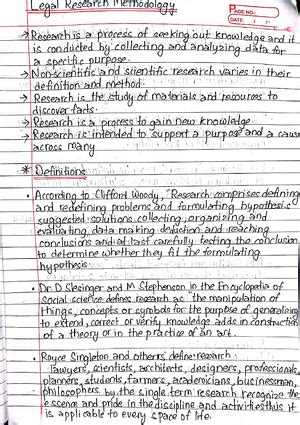 Legal Research Methodology
PAGE NO.:
DATE: / /
→ Research is a process of seeking out knowledge and it
is conducted by collecting and analyzing data for
a specific purpose.
→ Non-scientific and scientific research varies in their
definition and method.
→ Research is the study of materials and resources to
discover facts.
→ Research is a process to gain new knowledge.
→ Research is intended to support a purpose and a cause
across many
* Definitions
• According to Clifford Woody, "Research comprises defining
and redefining problems and formulating hypothesis
suggested solutions collecting, organizing and
evaluating, data making deduction and reaching
conclusions and at last carefully testing the conclusion
to determine whether they fit the formulating
hypothesis
• Dr. D Slesinger and M Stephenson in the Encyclopedia of
Social science defines research as "the manipulation of
things, concepts or symbols for the purpose of generalizing
to extend, correct or verify knowledge adds in construction
of a theory or in the practice of an art.
• Royce Singleton and others define research:
"lawyers, scientists, architects, designers, professionals,
planners, students, farmers, academicians, businessman,
philosophers by the single term research recognize the
essence and pride in the discipline and activities thus it
is applicable to every space of life.